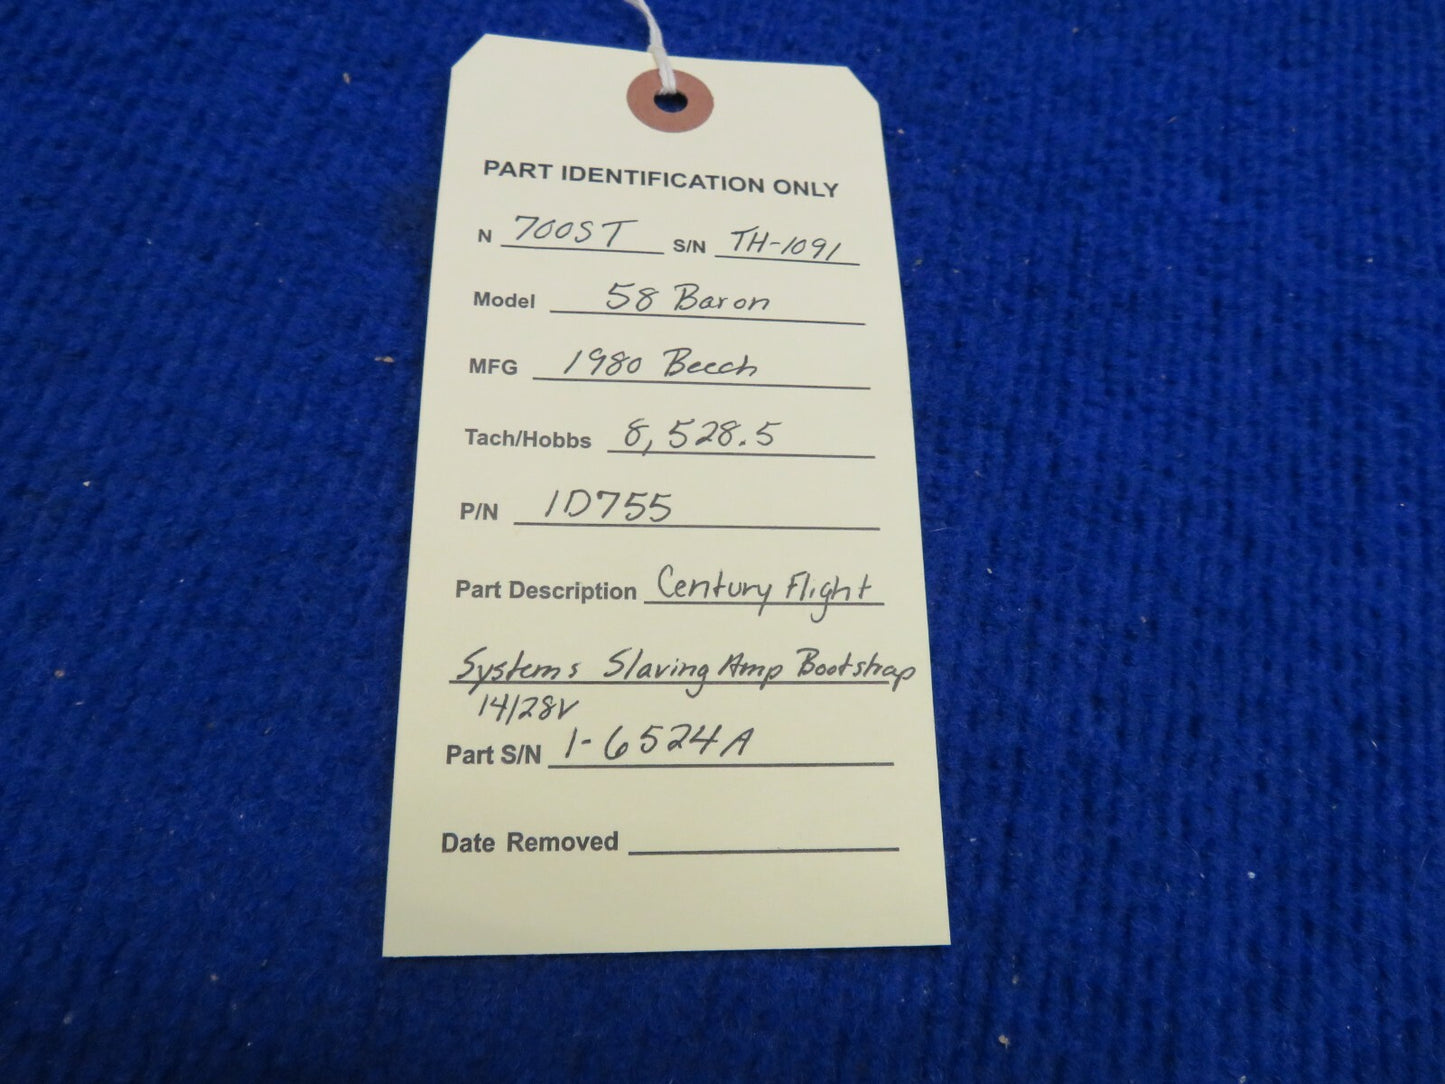 PART IDENTIFICATION ONLY
N 700ST S/N TH-1091
Model 58 Baron
MFG 1980 Beech
Tach/Hobbs 8,528.5
P/N 1D755
Part Description Century Flight
Systems Slaving Amp Bootstrap
14/28V
Part S/N 1-6524A
Date Removed